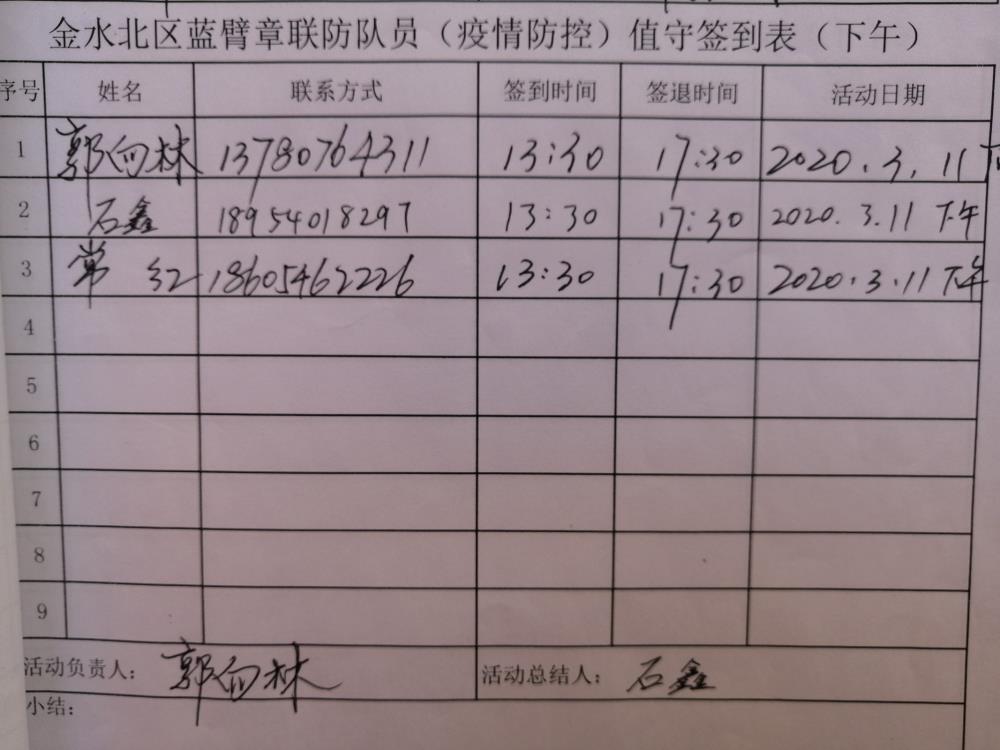 金水北区蓝臂章联防队员（疫情防控）值守签到表（下午）
序号 姓名 联系方式 签到时间 签退时间 活动日期
1 郭向林 13780764311 13:30 17:30 2020.3.11 下
2 石鑫 18954018297 13:30 17:30 2020.3.11 下午
3 常红 18605462226 13:30 17:30 2020.3.11 下午
4
5
6
7
8
9
活动负责人： 郭向林 活动总结人： 石鑫
小结：